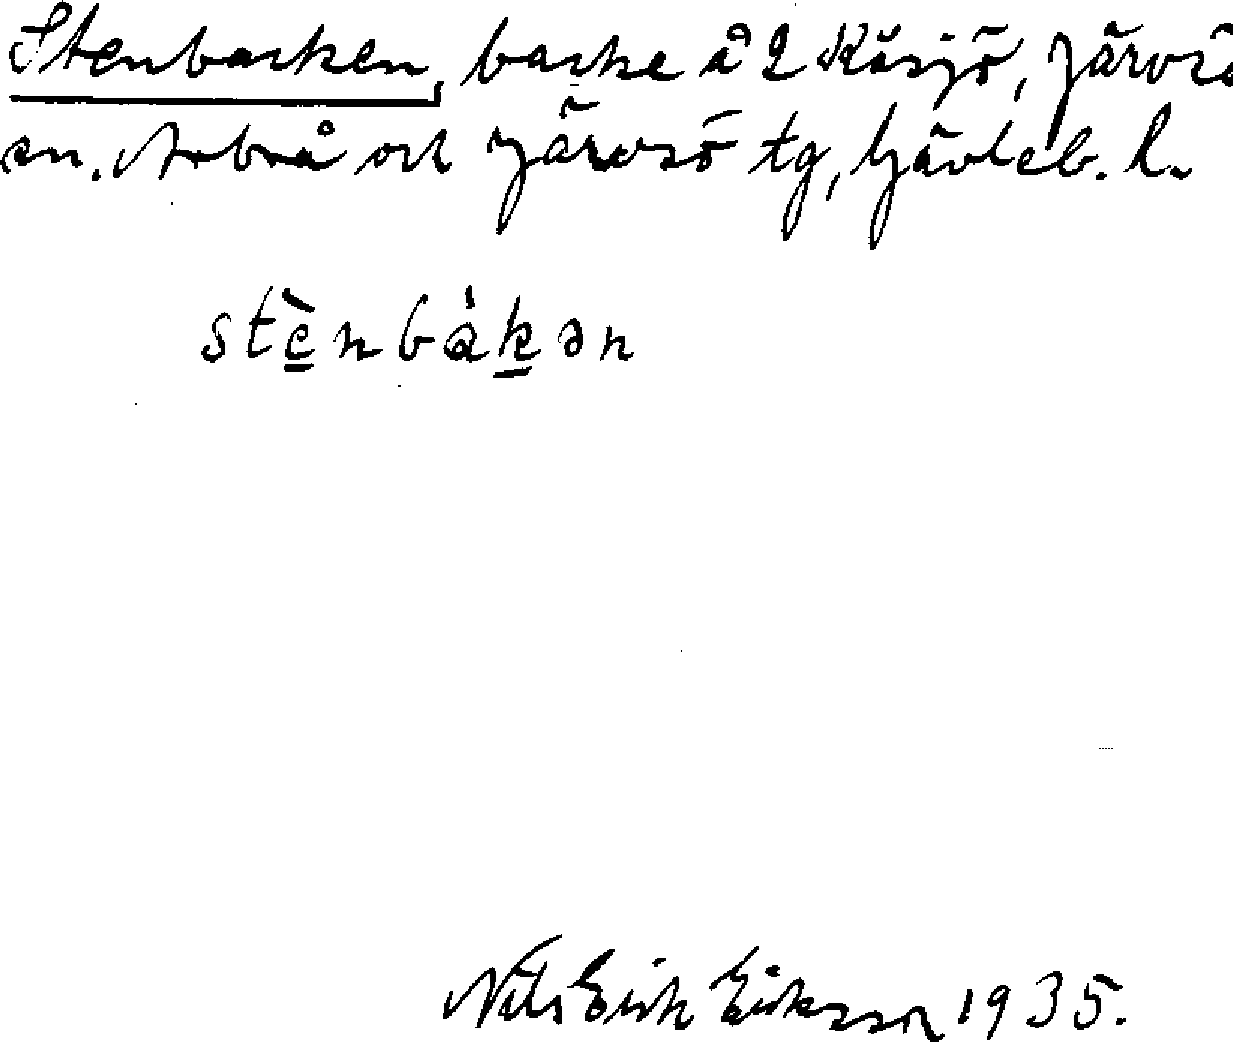 Stenbacken, backe å 2 Kåsjö, Järvsö
sn. Arbrå och Järvsö tg, Gävleb. l.
stènbàkən
Nils Erik Eriksson 1935.